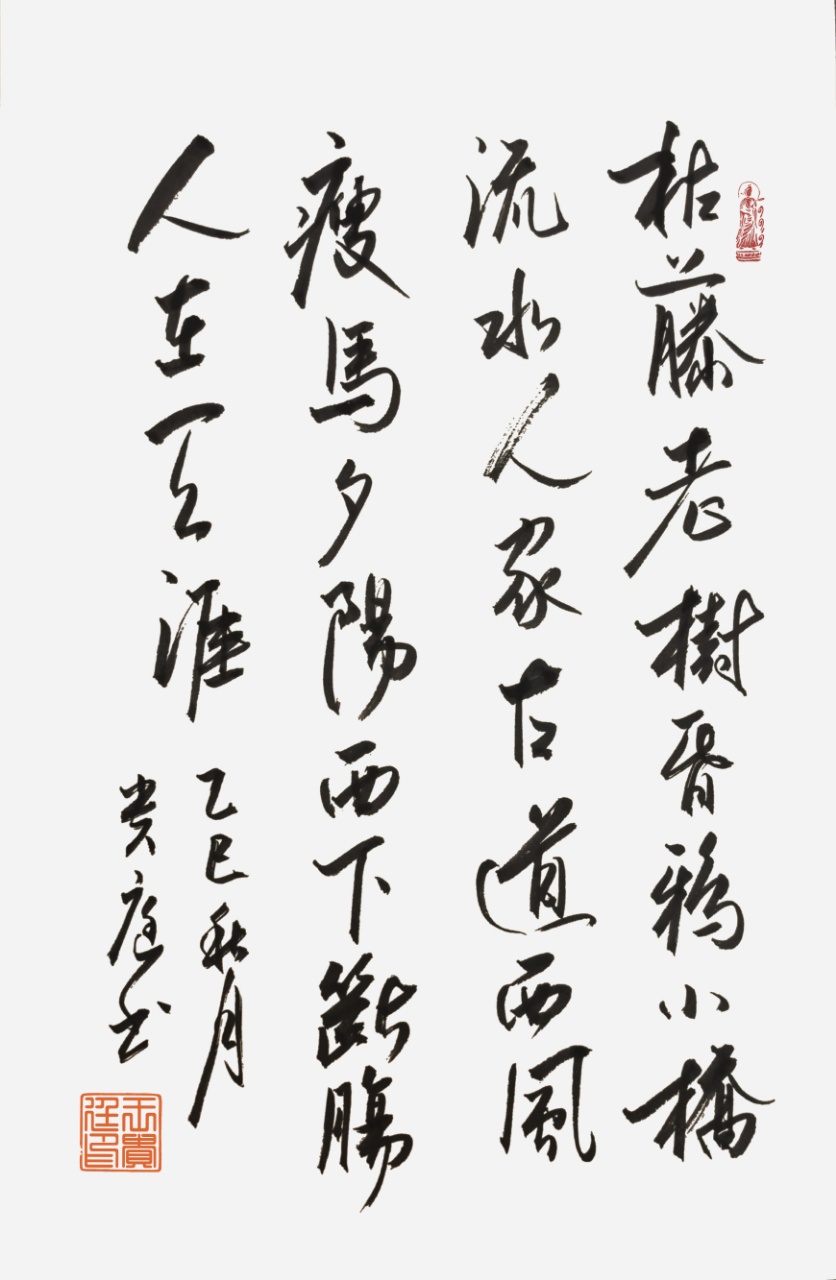 枯藤老樹昏鴉小橋
流水人家古道西風
瘦馬夕陽西下斷腸
人在天涯
乙巳秋月
贵庭书
王貴印